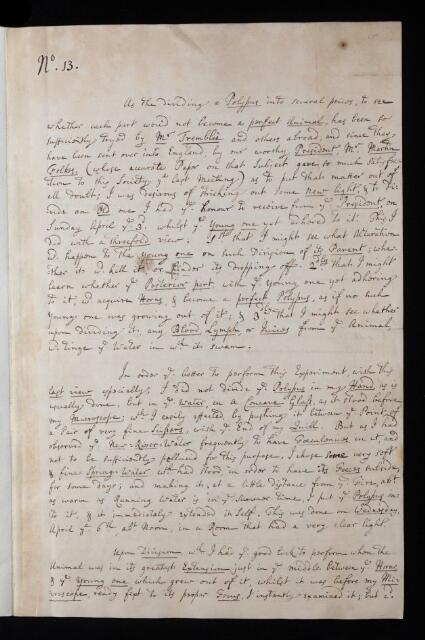 No. 13.
As the dividing a Polypus into several peices, to see
whether each part woud not become a perfect Animal, has been to
sufficiently tryed by Mr. Tremblie and others abroad, and since they
have been sent over into England, by our worthy President Mr. Martin
Folkes (whose accurate Paper on that Subject gave so much Satisfac-
tion to this Society ye. last Meeting) as to put that matter out of
all doubt; I was desirous of striking out some new light, & to Di-
vide an old one I had ye. honour to receive from ye. President on
Sunday April ye. 3. whilst ye. young one yet adhered to it. This I
did with a threefold view. 1st. that I might see what Alteration
wd. happen to the young one on such Division of its Parent; whe-
ther it wd. kill it, or hinder its dropping off. 2dly. that I might
learn whether ye. Posterior part with ye. young one yet adhering
to it, wd. acquire Horns, & become a perfect Polypus, as if no such
young one was growing out of it; & 3dly. that I might see whether
upon dividing it, any Blood, Lymph or Juices from ye. Animal,
wd. tinge ye. Water in wch. it swam.
In order ye. better to perform this Experiment, with this
last view especially, I did not divide ye. Polypus in my Hand, as is
usually done; but in ye. Water, in a Concave Glass, as it stood before
my Microscope; wch. I easily effected by pushing it between ye. Points of
a Pair of very fine Scissors, with ye. End of my Quill. But as I had
observed ye. New-River-Water frequently to have in it, and
not to be sufficiently pellucid for this purpose, I chose some very soft
& fine Spring-Water wch. had stood, in order to have its Foeces subside,
for some days; and making it, at a little distance from ye. Fire, abt.
as warm as Running Water is in ye. Summer time, I put ye. Polypus in-
to it, & it immediately extended itself. This was done on Wednesday,
April ye. 6th. abt. Noon, in a Room that had a very clear light.
Upon Division wch. I had ye. good luck to perform when the
Animal was in its greatest Extension just in ye. middle between ye. Horns
& ye. young one which grew out of it, whilst it was before my Mic-
roscope, ready fixt to its proper Focus, I instantly examined it; but cd.